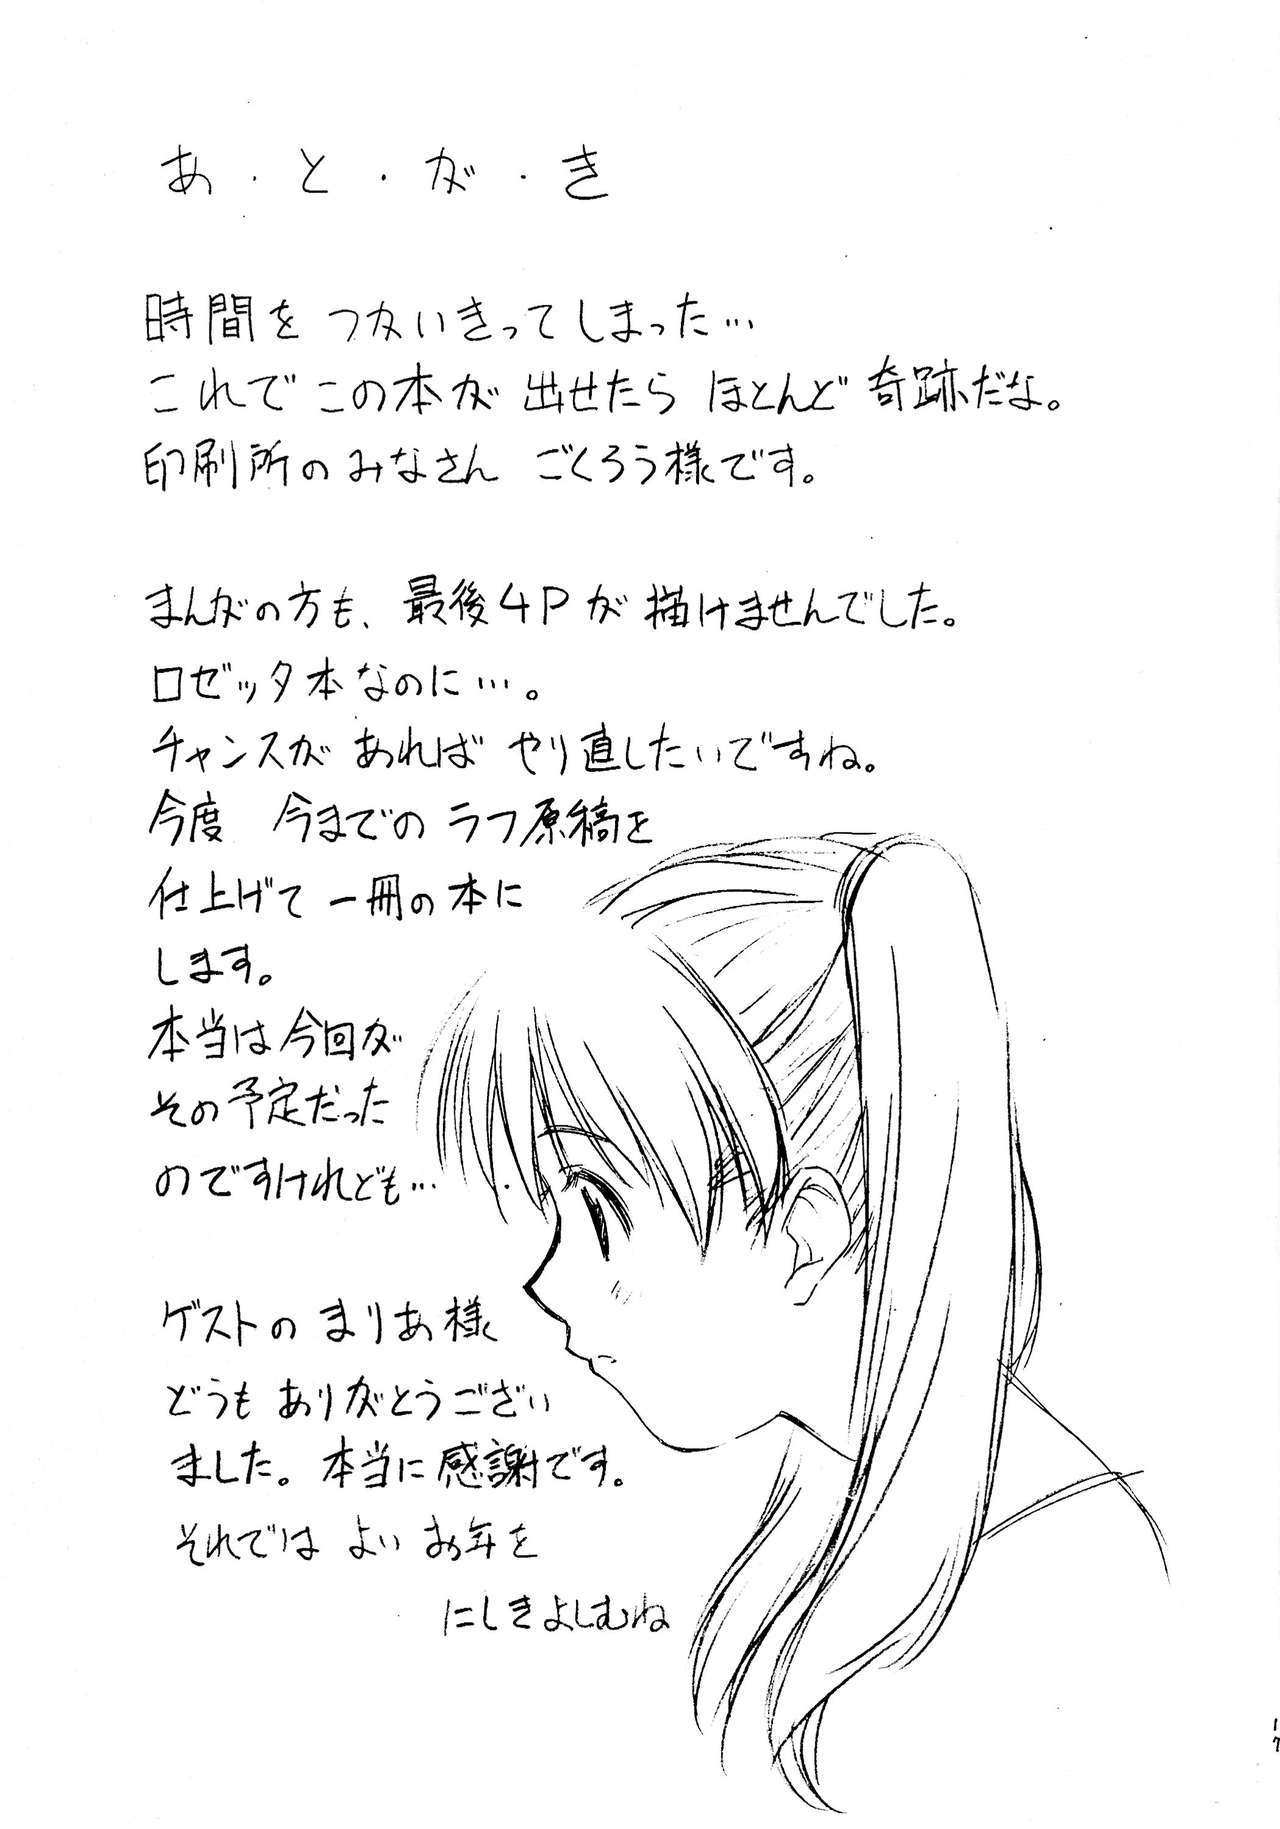 あ・と・が・き
時間を つかいきってしまった…
これでこの本が 出せたら ほとんど 奇跡だな。
印刷所のみなさん ごくろう様です。
まんがの方も、最後4Pが 描けませんでした。
ロゼッタ本なのに…。
チャンスが あれば やり直したいですね。
今度 今までの ラフ原稿を
仕上げて 一冊の本に
します。
本当は今回が
その予定だった
のですけれども…
ゲストの まりあ様
どうも ありがとうござい
ました。本当に感謝です。
それでは よい お年を
にしきよしむね
17